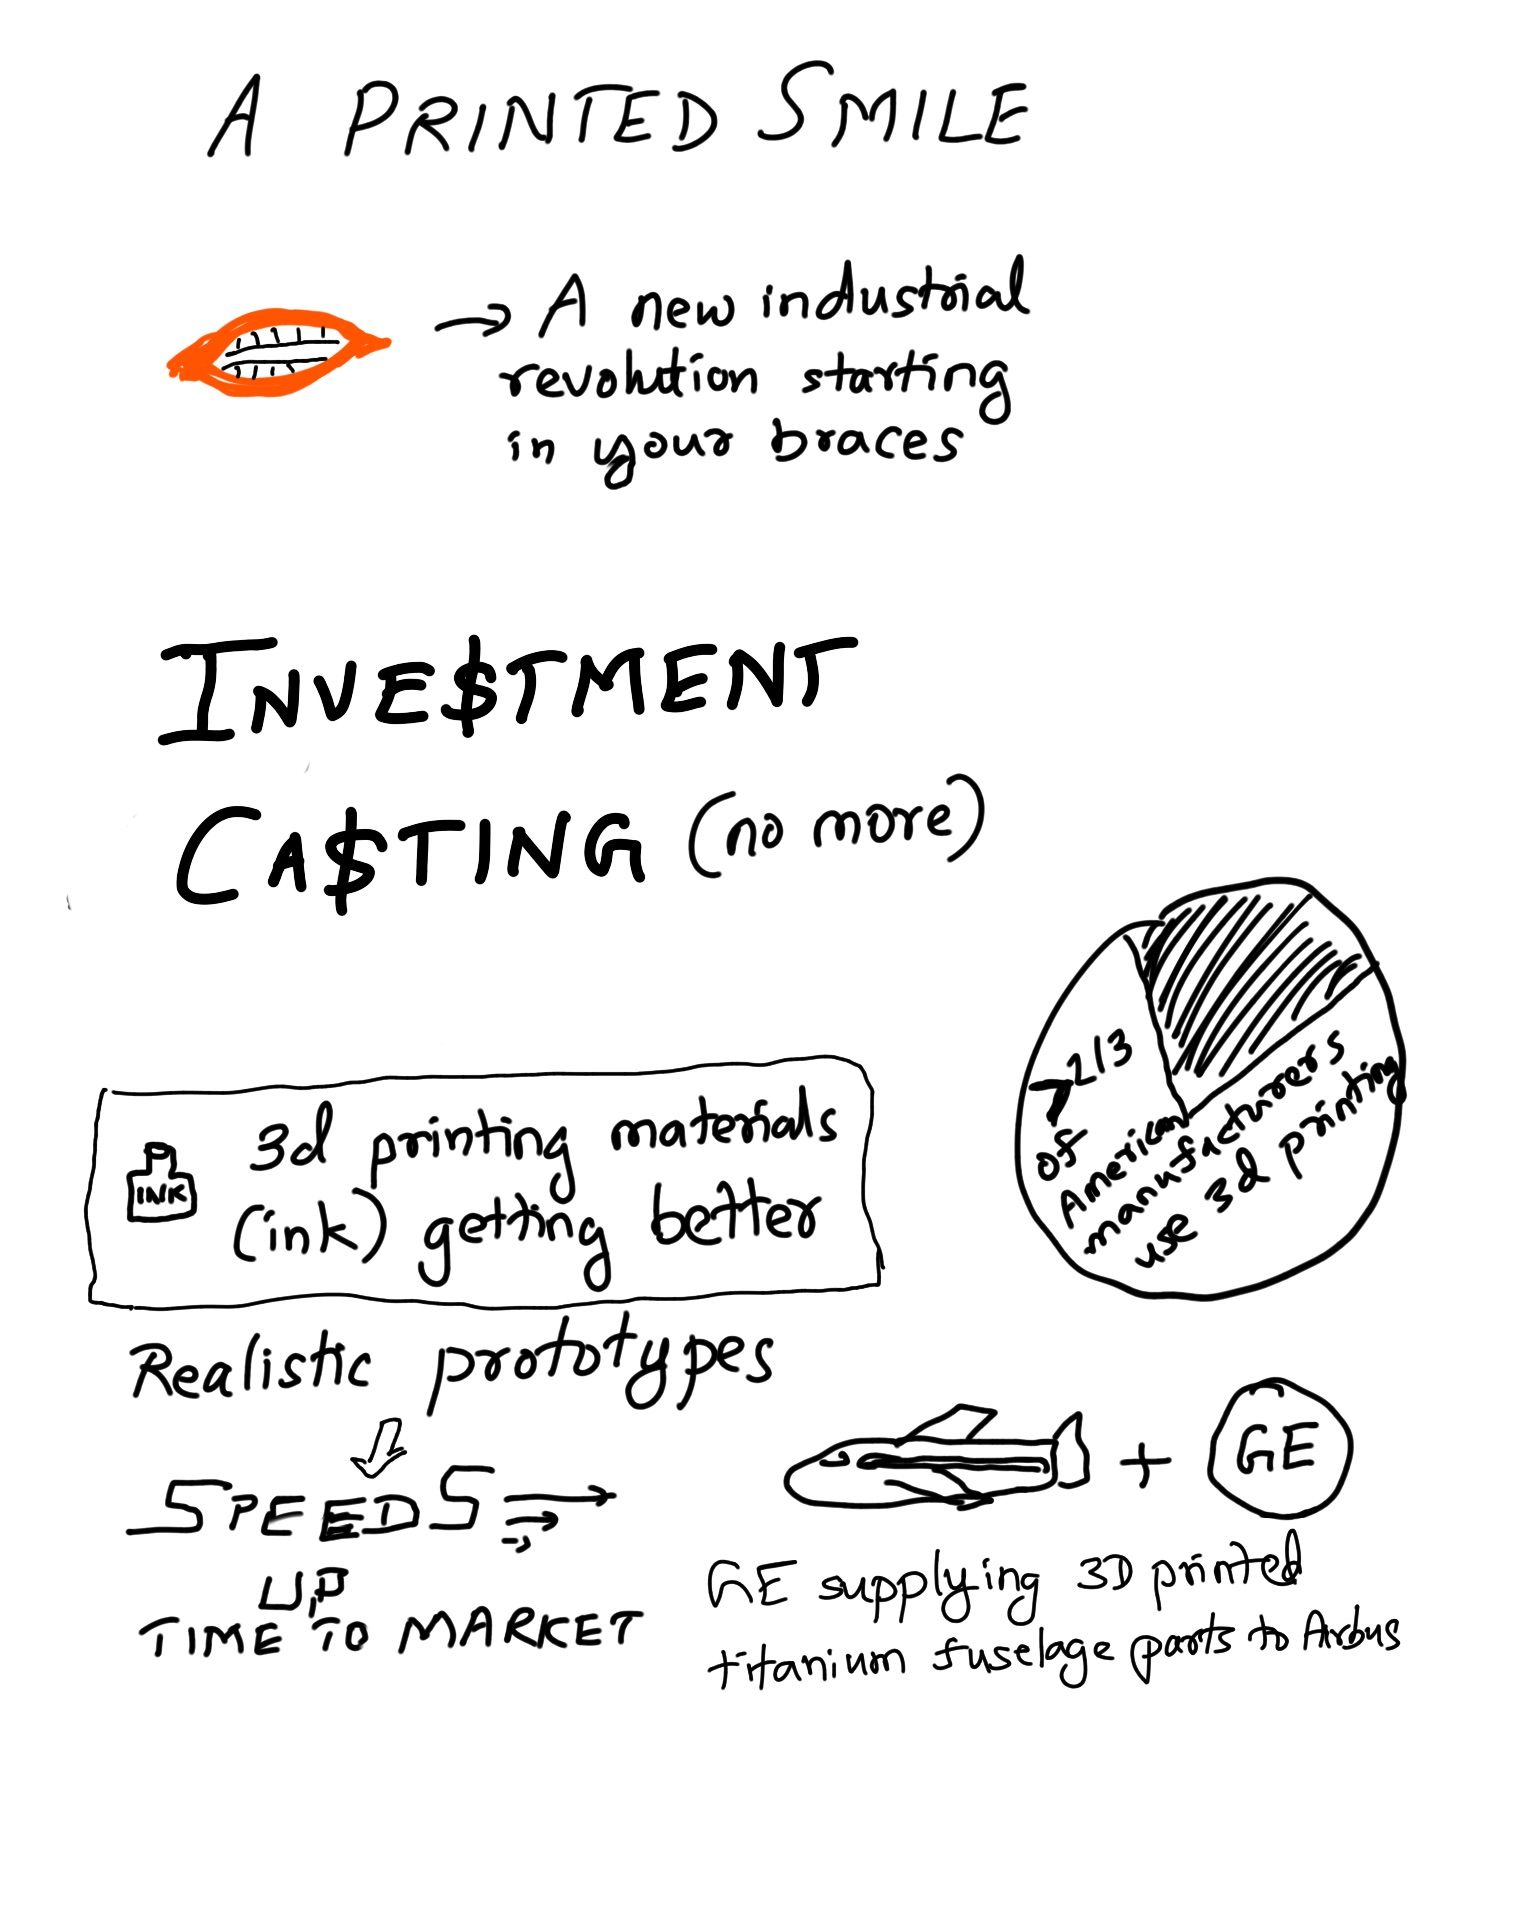 A PRINTED SMILE
→ A new industrial
revolution starting
in your braces
INVE$TMENT
CA$TING (no more)
7 2/3
of
American
manufacturers
use 3d printing
INK
3d printing materials
(ink) getting better
Realistic prototypes
SPEEDS
UP
TIME TO MARKET
+ GE
GE supplying 3D printed
titanium fuselage parts to Airbus